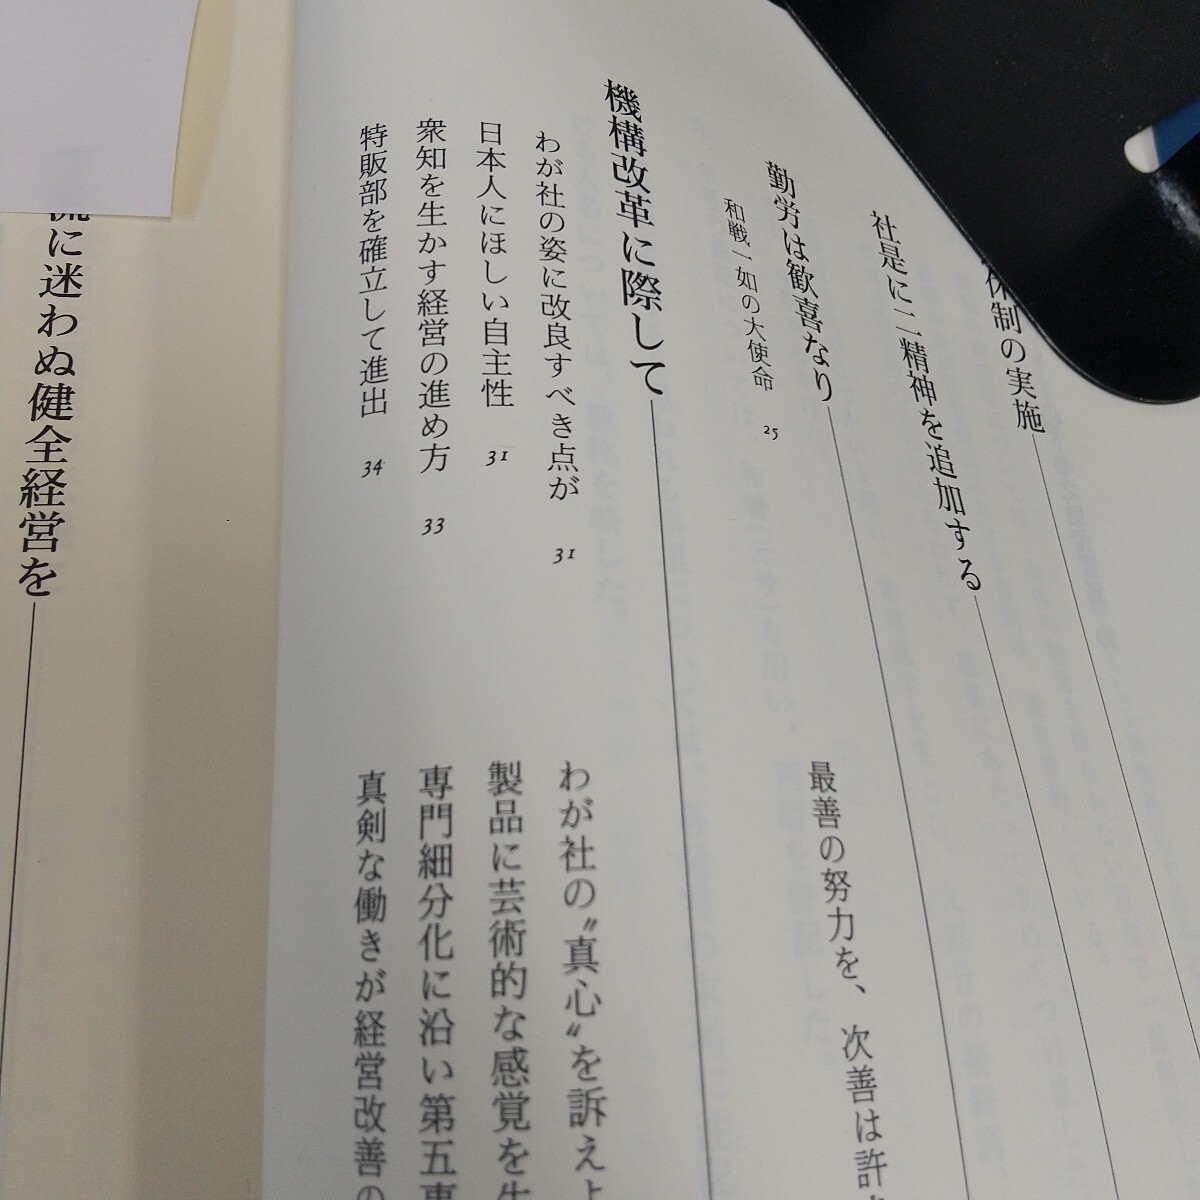 体制の実施
社是に二精神を追加する
勤労は歓喜なり
和戦一如の大使命 25
最善の努力を、次善は許
機構改革に際して
わが社の姿に改良すべき点が 31
日本人にほしい自主性 31
衆知を生かす経営の進め方 33
特販部を確立して進出 34
わが社の〝真心〟を訴えよ
製品に芸術的な感覚を生
専門細分化に沿い第五専
真剣な働きが経営改善の
流に迷わぬ健全経営を